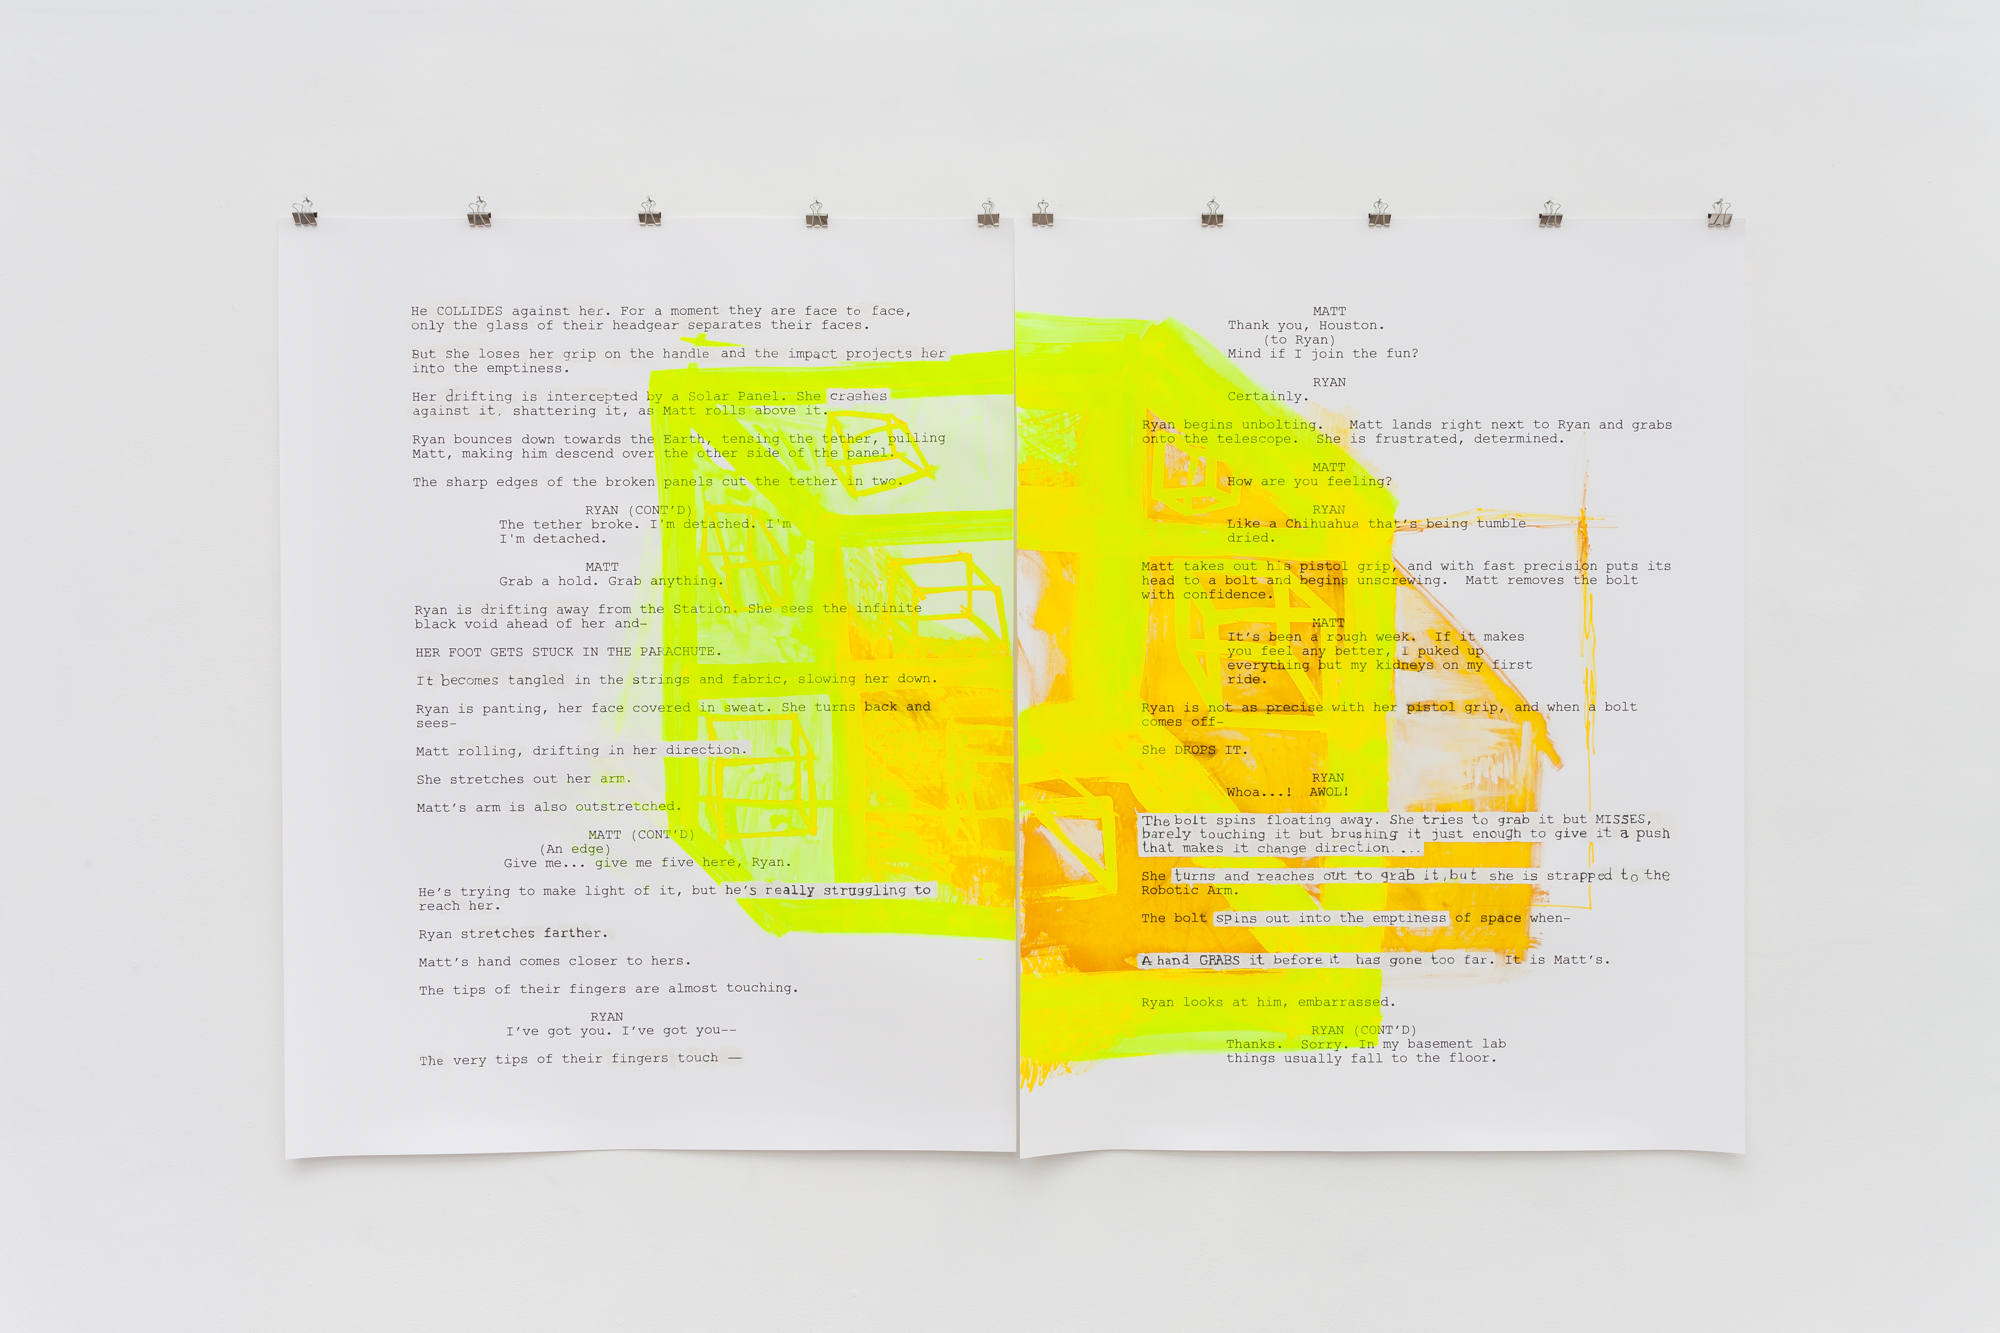 He COLLIDES against her. For a moment they are face to face,
only the glass of their headgear separates their faces.
But she loses her grip on the handle and the impact projects her
into the emptiness.
Her drifting is intercepted by a Solar Panel. She crashes
against it, shattering it, as Matt rolls above it.
Ryan bounces down towards the Earth, tensing the tether, pulling
Matt, making him descend over the other side of the panel.
The sharp edges of the broken panels cut the tether in two.
RYAN (CONT'D)
The tether broke. I'm detached. I'm
I'm detached.
MATT
Grab a hold. Grab anything.
Ryan is drifting away from the Station. She sees the infinite
black void ahead of her and-
HER FOOT GETS STUCK IN THE PARACHUTE.
It becomes tangled in the strings and fabric, slowing her down.
Ryan is panting, her face covered in sweat. She turns back and
sees-
Matt rolling, drifting in her direction.
She stretches out her arm.
Matt's arm is also outstretched.
MATT (CONT'D)
(An edge)
Give me... give me five here, Ryan.
He's trying to make light of it, but he's really struggling to
reach her.
Ryan stretches farther.
Matt's hand comes closer to hers.
The tips of their fingers are almost touching.
RYAN
I've got you. I've got you--
The very tips of their fingers touch —
MATT
Thank you, Houston.
(to Ryan)
Mind if I join the fun?
RYAN
Certainly.
Ryan begins unbolting. Matt lands right next to Ryan and grabs
onto the telescope. She is frustrated, determined.
MATT
How are you feeling?
RYAN
Like a Chihuahua that's being tumble
dried.
Matt takes out his pistol grip, and with fast precision puts its
head to a bolt and begins unscrewing. Matt removes the bolt
with confidence.
MATT
It's been a rough week. If it makes
you feel any better, I puked up
everything but my kidneys on my first
ride.
Ryan is not as precise with her pistol grip, and when a bolt
comes off-
She DROPS IT.
RYAN
Whoa...! AWOL!
The bolt spins floating away. She tries to grab it but MISSES,
barely touching it but brushing it just enough to give it a push
that makes it change direction....
She turns and reaches out to grab it, but she is strapped to the
Robotic Arm.
The bolt spins out into the emptiness of space when-
A hand GRABS it before it has gone too far. It is Matt's.
Ryan looks at him, embarrassed.
RYAN (CONT'D)
Thanks. Sorry. In my basement lab
things usually fall to the floor.